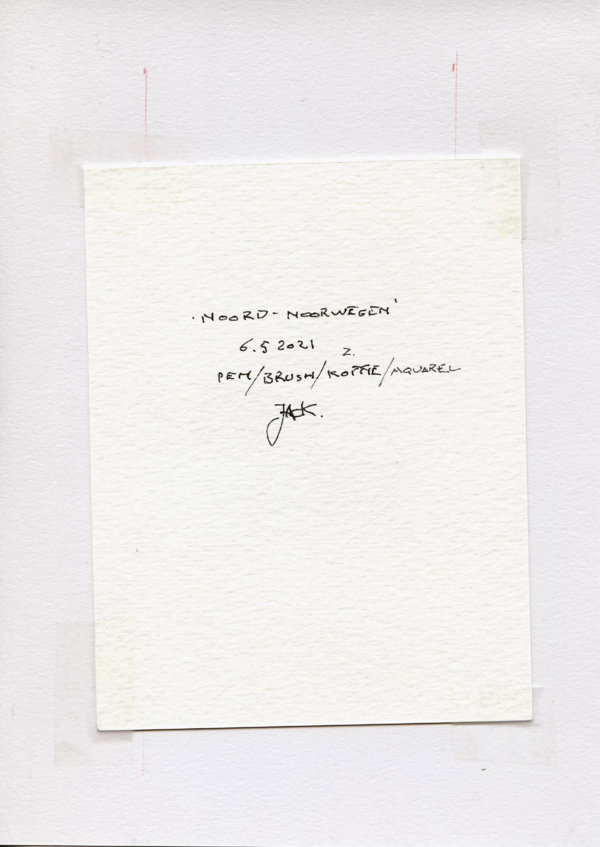 'NOORD-NOORWEGEN'
6.5 2021
2.
PEN/BRUSH/KOFFIE/AQUAREL
JACK.